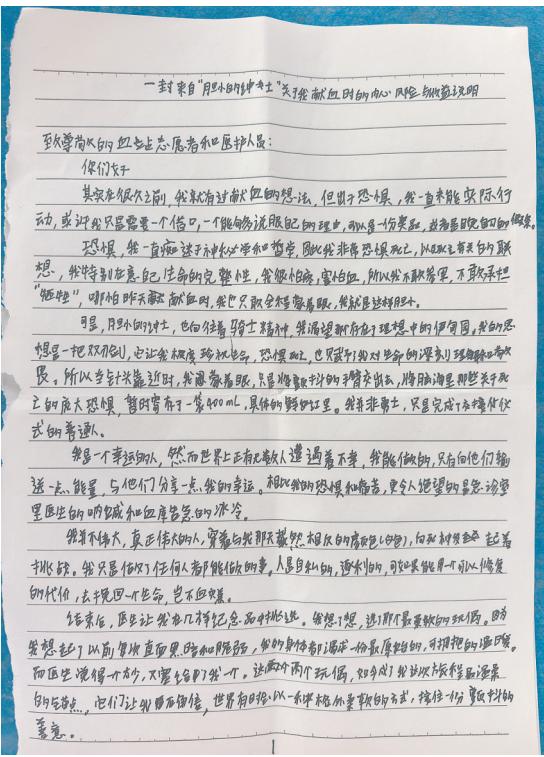 一封来自"胆小的绅士"关于我献血时的内心风险与收益说明
致尊敬的血站志愿者和医护人员:
你们好
其实在很久之前,我就有过献血的想法,但出于恐惧,我一直未能实际行
动,或许我只是需要一个借口,一个能够说服自己的理由,可以是一份奖励,或者是晚自习的假条。
恐惧,我一直痴迷于神秘学和哲学,因此我非常恐惧死亡,以及和它有关的联
想,我特别在意自己生命的完整性,我很怕病,害怕血,所以我不敢冒累,不敢承担
"牺牲",哪怕昨天献血时,我也只敢全程蒙着眼,我就是这样胆小。
可是,胆小的绅士,也向往着骑士精神,我渴望那存在于理想中的伊甸园。我的恐
惧是一把双刃剑,它让我极度珍视生命,恐惧死亡,也赋予了我对生命的深刻理解和敬
畏。所以当针头靠近时,我蒙着眼,只是将颤抖的手臂交出去,将脑海里那些关于死
亡的庞大恐惧,暂时寄存于一袋400mL,具体的鲜红里。我并非勇士,只是完成了交接仪
式的普通人。
我是一个幸运的人,然而世界上正有无数人遭遇着不幸,我能做的,只有向他们输
送一点能量,与他们分享一点我的幸运。相比我的恐惧和痛苦,更令人绝望的是急诊室
里医生的呐喊和血库告急的冰冷。
我并不伟大,真正伟大的人,穿着与我那天截然相反的颜色(白色),向死神发起着
挑战。我只是做了任何人都能做的事。人是自私的,逐利的,可如果能用一个可以修复
的代价,去挽回一个生命,岂不血赚。
结束后,医生让我在几样纪念品中挑选。我想了想,选了那个最柔软的玩偶。因为
我想起了以前每次直面黑暗和脆弱,我的身体都渴求一份最原始的,可拥抱的温暖。
而医生觉得一个少,又塞给了我一个。这两个玩偶,如今成了我这次旅程最温柔
的句点,它们让我更加相信,世界有时会以一种格外柔软的方式,接住一份颤抖的
善意。
1